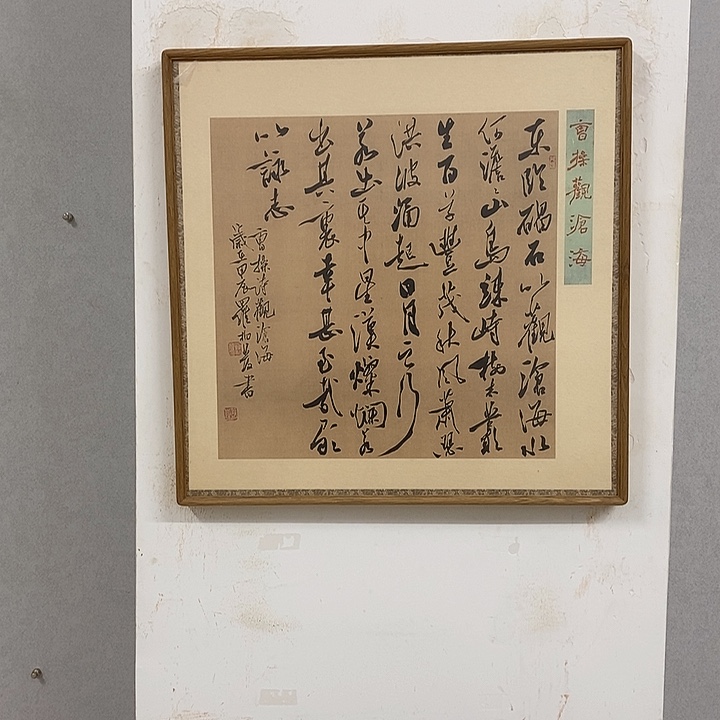 曹操觀滄海
東臨碣石以觀滄海水
何澹〻山島竦峙樹木叢
生百草豐茂秋風蕭瑟
洪波涌起日月之行
若出其中星漢燦爛若
出其裏幸甚至哉歌
以詠志
曹操詩觀滄海
歲在甲辰羅書